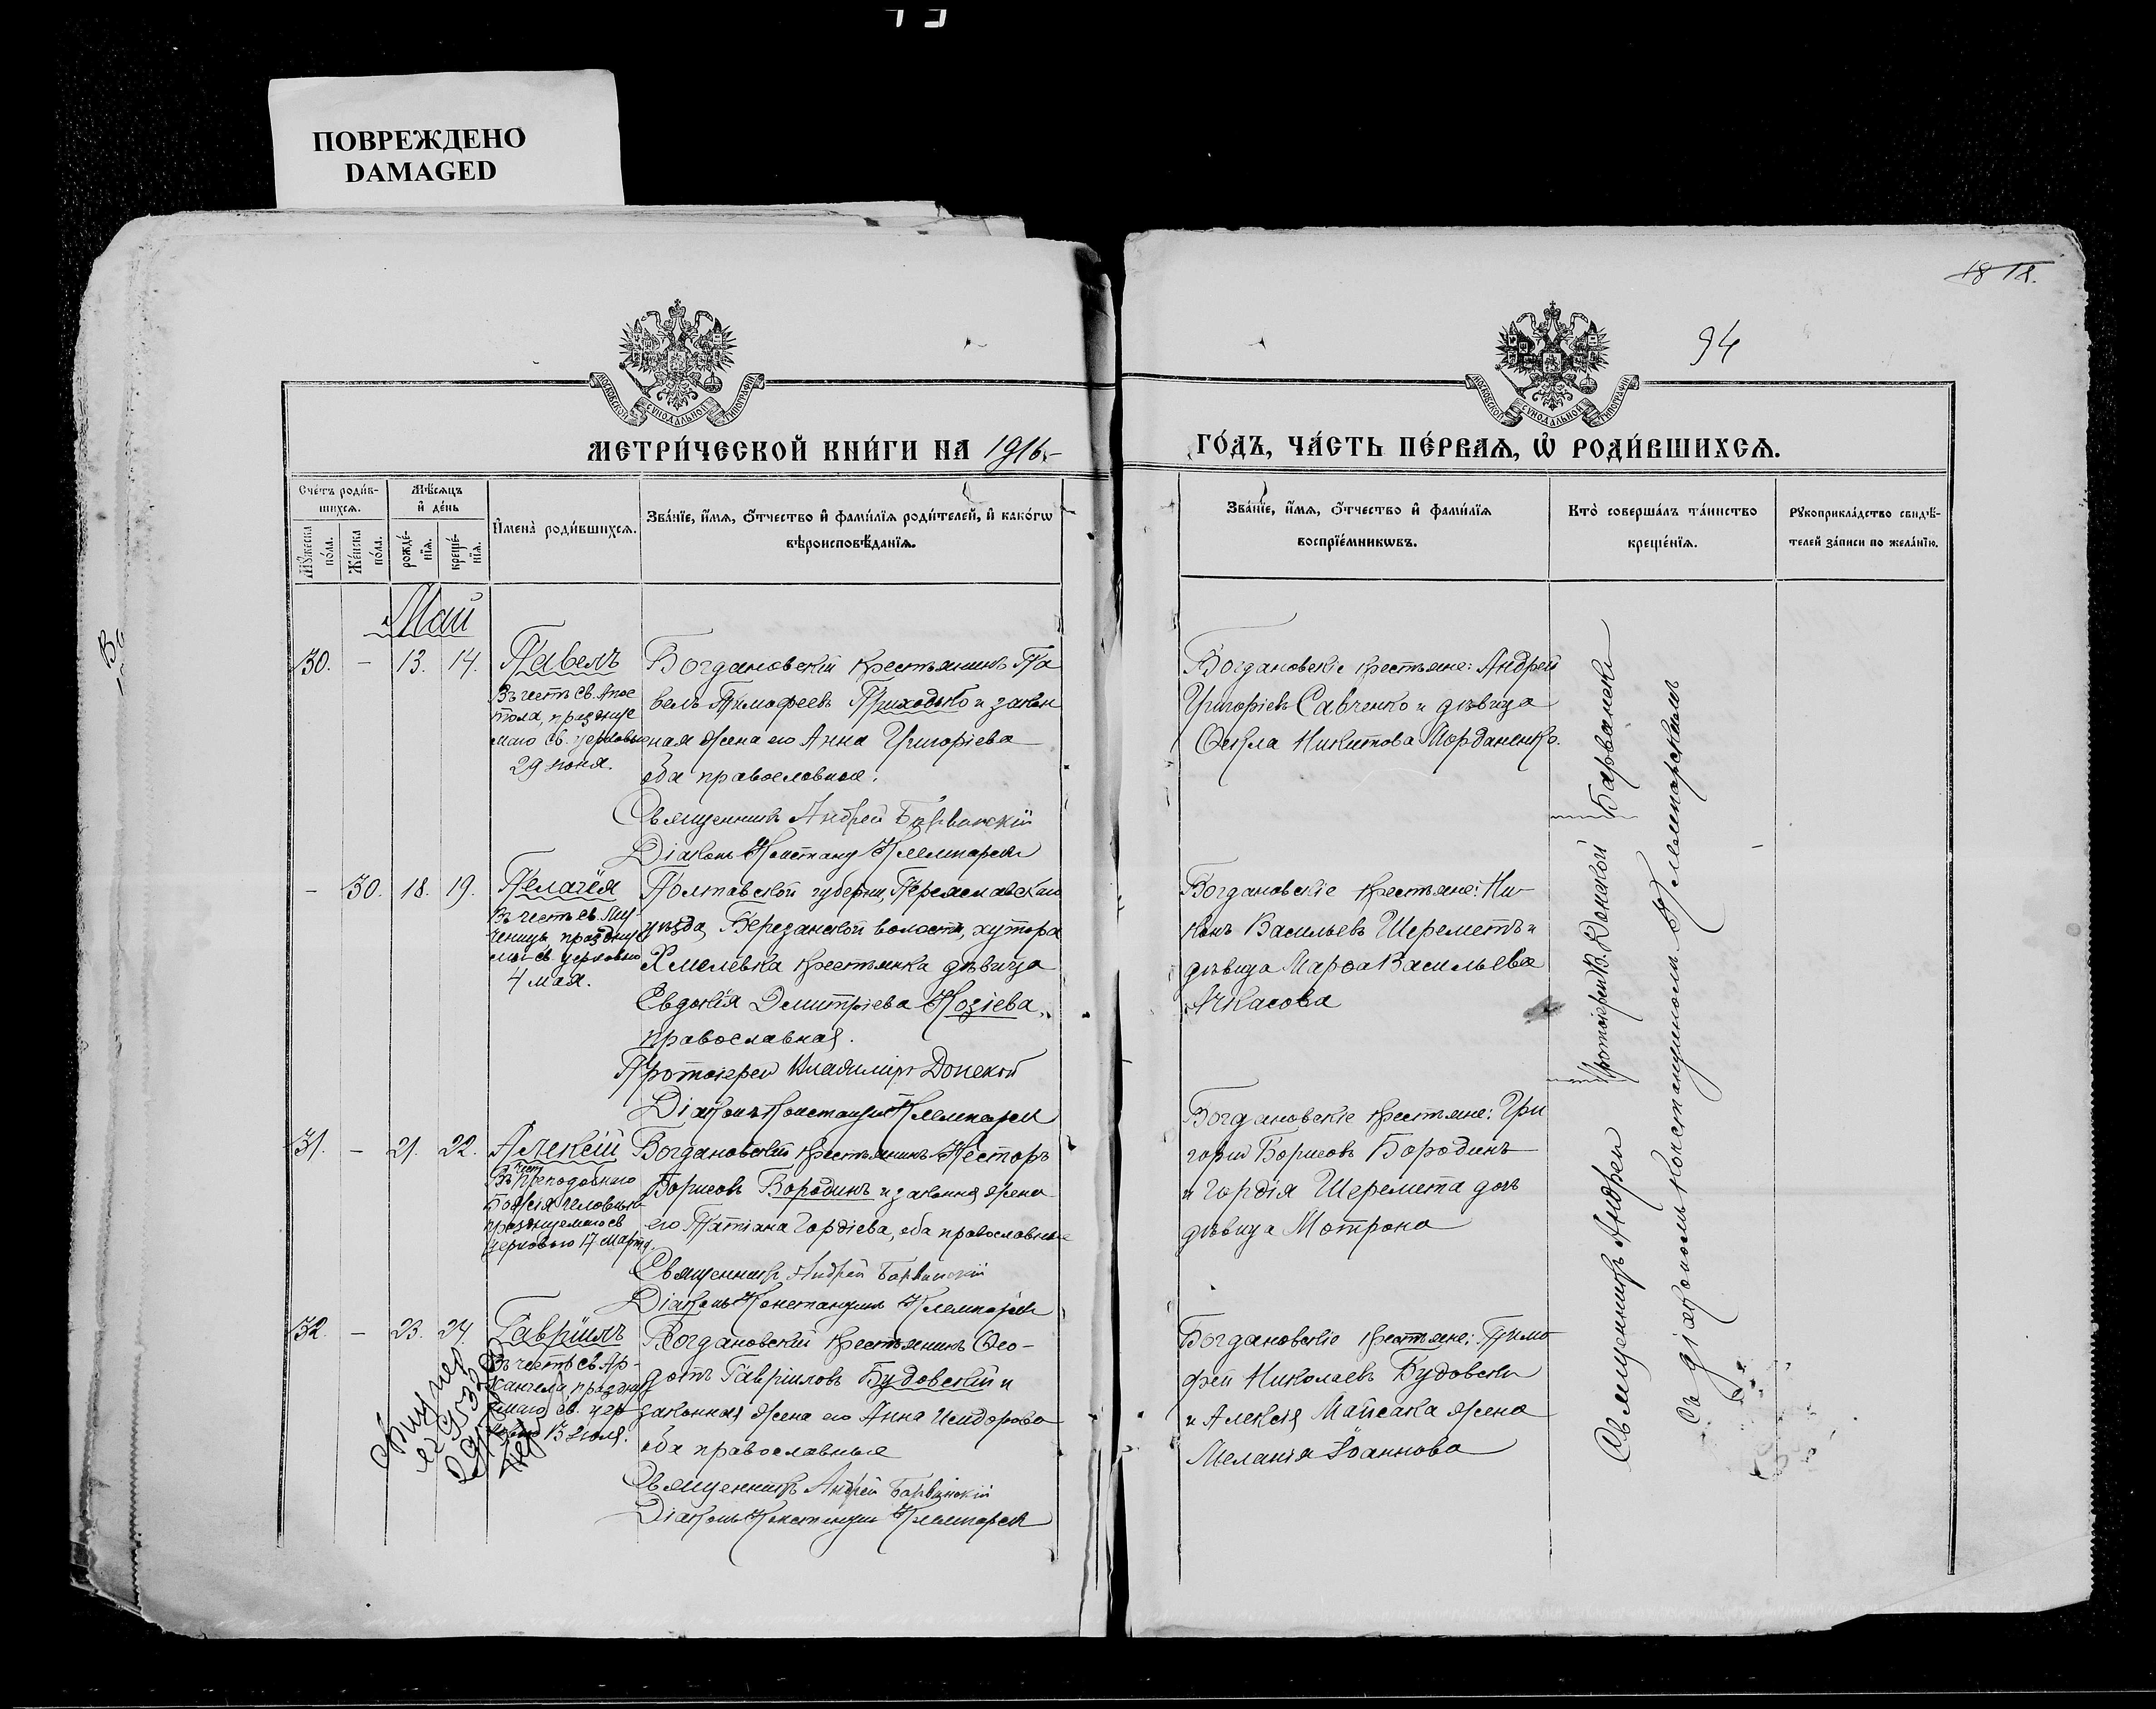 ПОВРЕЖДЕНО
DAMAGED
18 18.
94
МОСКОВСКОЙ СУНОДАЛЬНОЙ ТИПОГРАФІИ
МОСКОВСКОЙ СУНОДАЛЬНОЙ ТИПОГРАФІИ
МЕТРИ́ЧЕСКОЙ КНИ́ГИ НА 1916.
ГО́ДЪ, ЧА́СТЬ ПЕ́РВАѦ, Ѡ҆ РОДИ́ВШИХСѦ.
Сче́тъ роди́в-
шихсѧ.
Мꙋ́жеска по́ла.
Же́нска по́ла.
Мѣ́сѧцъ
и҆ де́нь
рожде́-
нїѧ.
креще́-
нїѧ.
И҆мена̀ роди́вшихсѧ.
Зва́нїе, и҆́мѧ, ѻ҆́тчество и҆ фами́лїѧ роди́телей, и҆ како́гѡ
вѣроисповѣ́данїѧ.
Зва́нїе, и҆́мѧ, ѻ҆́тчество и҆ фами́лїѧ
воспрїе́мникѡвъ.
Кто̀ соверша́лъ та́инство
креще́нїѧ.
Рꙋкоприкла́дство свидѣ́-
телей за́писи по жела́нїю.
Май
30. – 13. 14. Павелъ
Въ честь св. Апос
тола, празднуе
маго св. церковью
29 іюня.
Богдановскій крестьянинъ Па
велъ Тимофеевъ Приходько и закон
ная жена его Анна Григоріева
оба православные.
Священникъ Андрей Барвинскій
Діаконъ
Богдановскіе крестьяне: Андрей
Григоріевъ Савченко и дѣвица
Ѳекла Никитова Іорданенко.
– 30. 18. 19. Пелагія
Въ честь св. Му-
ченицы, праздну
св. церковью
4 мая.
Полтавской губерніи, Переяславскаго
уѣзда, Березанской волости, хутора
Хмелевка крестьянка дѣвица
Евдокія Димитріева Козіева,
православная.
Протоіерей Владиміръ Донской
Діаконъ
Богдановскіе крестьяне: Ни-
конъ Васильевъ Шереметъ и
дѣвица Марѳа Васильева
Ачкасова
31. – 21. 22. Алексій
Въ чест
Преподобнаго
Божія человѣка
празднуемаго св
церковью 17 марта.
Богдановскій крестьянинъ Несторъ
Борисовъ Бородинъ и законная жена
его Татіана Гордіева, оба православные
Священникъ Андрей Барвинскій
Діаконъ Константинъ
Богдановскіе крестьяне: Гри
горій Борисовъ Бородинъ
и Гордія Шеремета дочь
дѣвица Мотрона
32. – 23. 24 Гавріилъ
Въ честь св. Ар-
хангела, праздну
емаго св. цер
ковью 13 іюля.
Богдановскій крестьянинъ Ѳео-
дотъ Гавріиловъ Будовскій и
законная жена его Анна Исидорова
оба православные
Священникъ Андрей Барвинскій
Діаконъ
Богдановскіе крестьяне: Тимо
фей Николаевъ Будовскій
и Алексія Майсака жена
Меланія Іоаннова
Священникъ Андрей
Протоіерей В. Донской
Барвинскій
Съ діакономъ Константиномъ